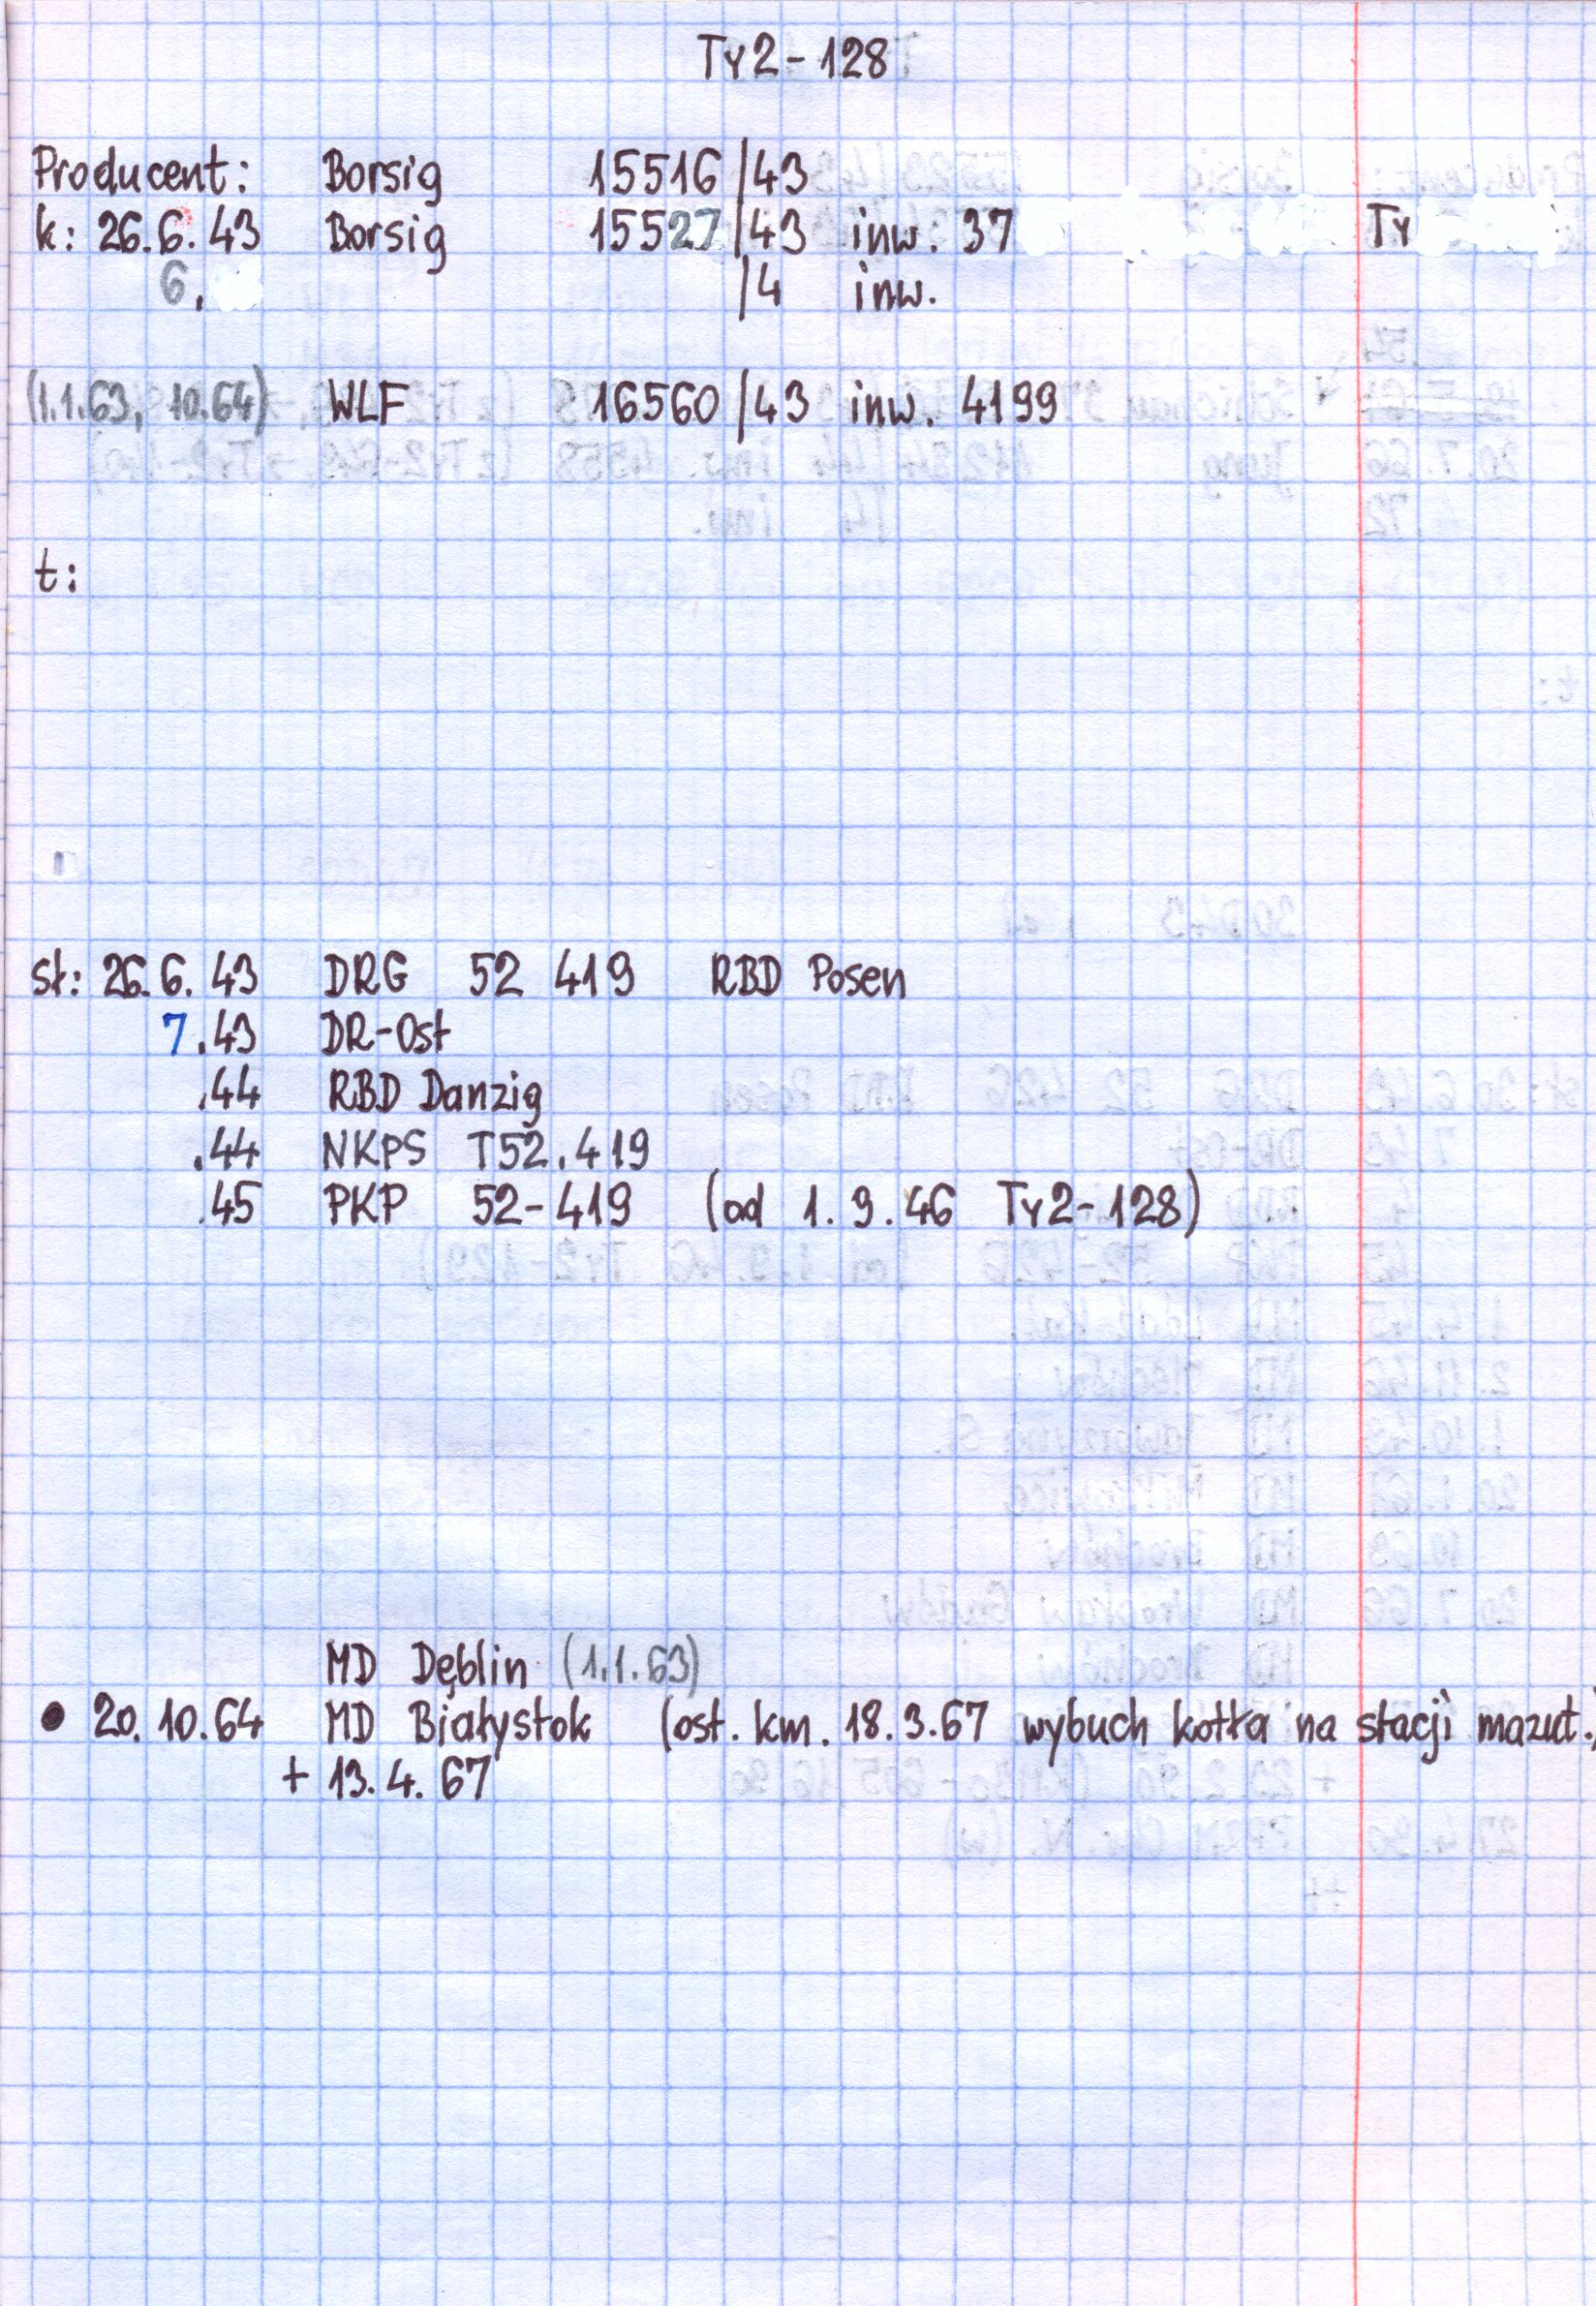 Ty2-128
Producent: Borsig 15516/43
k: 26.6.43 Borsig 15527/43 inw. 37 Ty
6. /4 inw.
(1.1.63, 10.64) WLF 16560/43 inw. 4199
t:
st: 26.6.43 DRG 52 419 RBD Posen
7.43 DR-Ost
.44 RBD Danzig
.44 NKPS T52.419
.45 PKP 52-419 (od 1.9.46 Ty2-128)
MD Dęblin (1.1.63)
• 20.10.64 MD Białystok (ost. km. 18.3.67 wybuch kotła na stacji mazut.)
+ 13.4.67